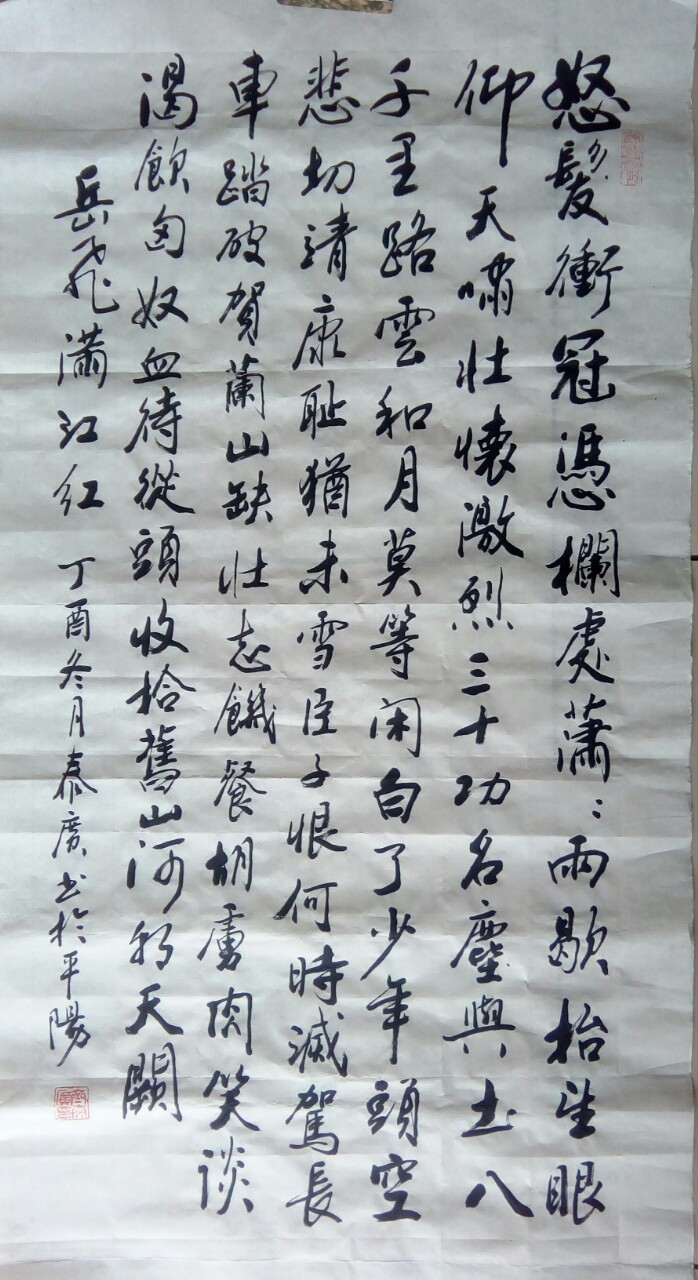 怒髮衝冠憑欄處蕭〻雨歇抬望眼
仰天嘯壯懷激烈三十功名塵與土八
千里路雲和月莫等闲白了少年頭空
悲切靖康耻猶未雪臣子恨何時滅駕長
車踏破賀蘭山缺壯志饑餐胡虜肉笑談
渴飲匈奴血待從頭收拾舊山河朝天闕
岳飛滿江红 丁酉冬月泰廣书於平陽